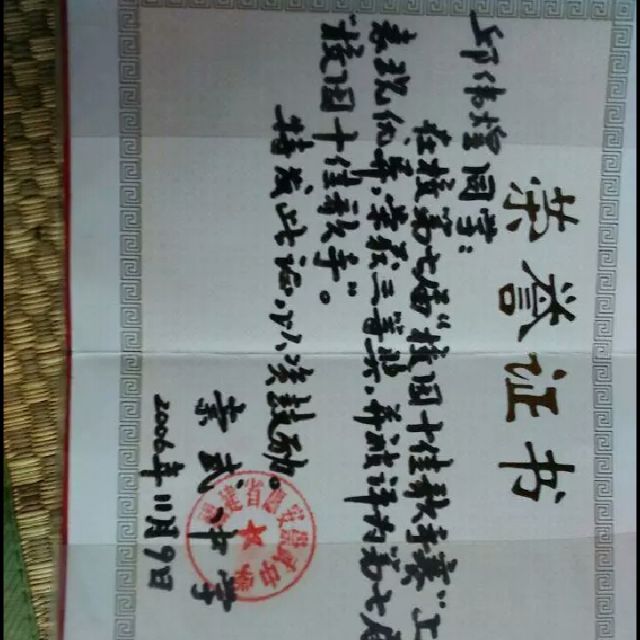 荣誉证书
邱伟煌同学:
在校第七届"校园十佳歌手赛"上
表现优异,荣获三等奖,并被评为第七届
"校园十佳歌手"。
特发此证,以资鼓励。
崇武中学
2006年11月9日